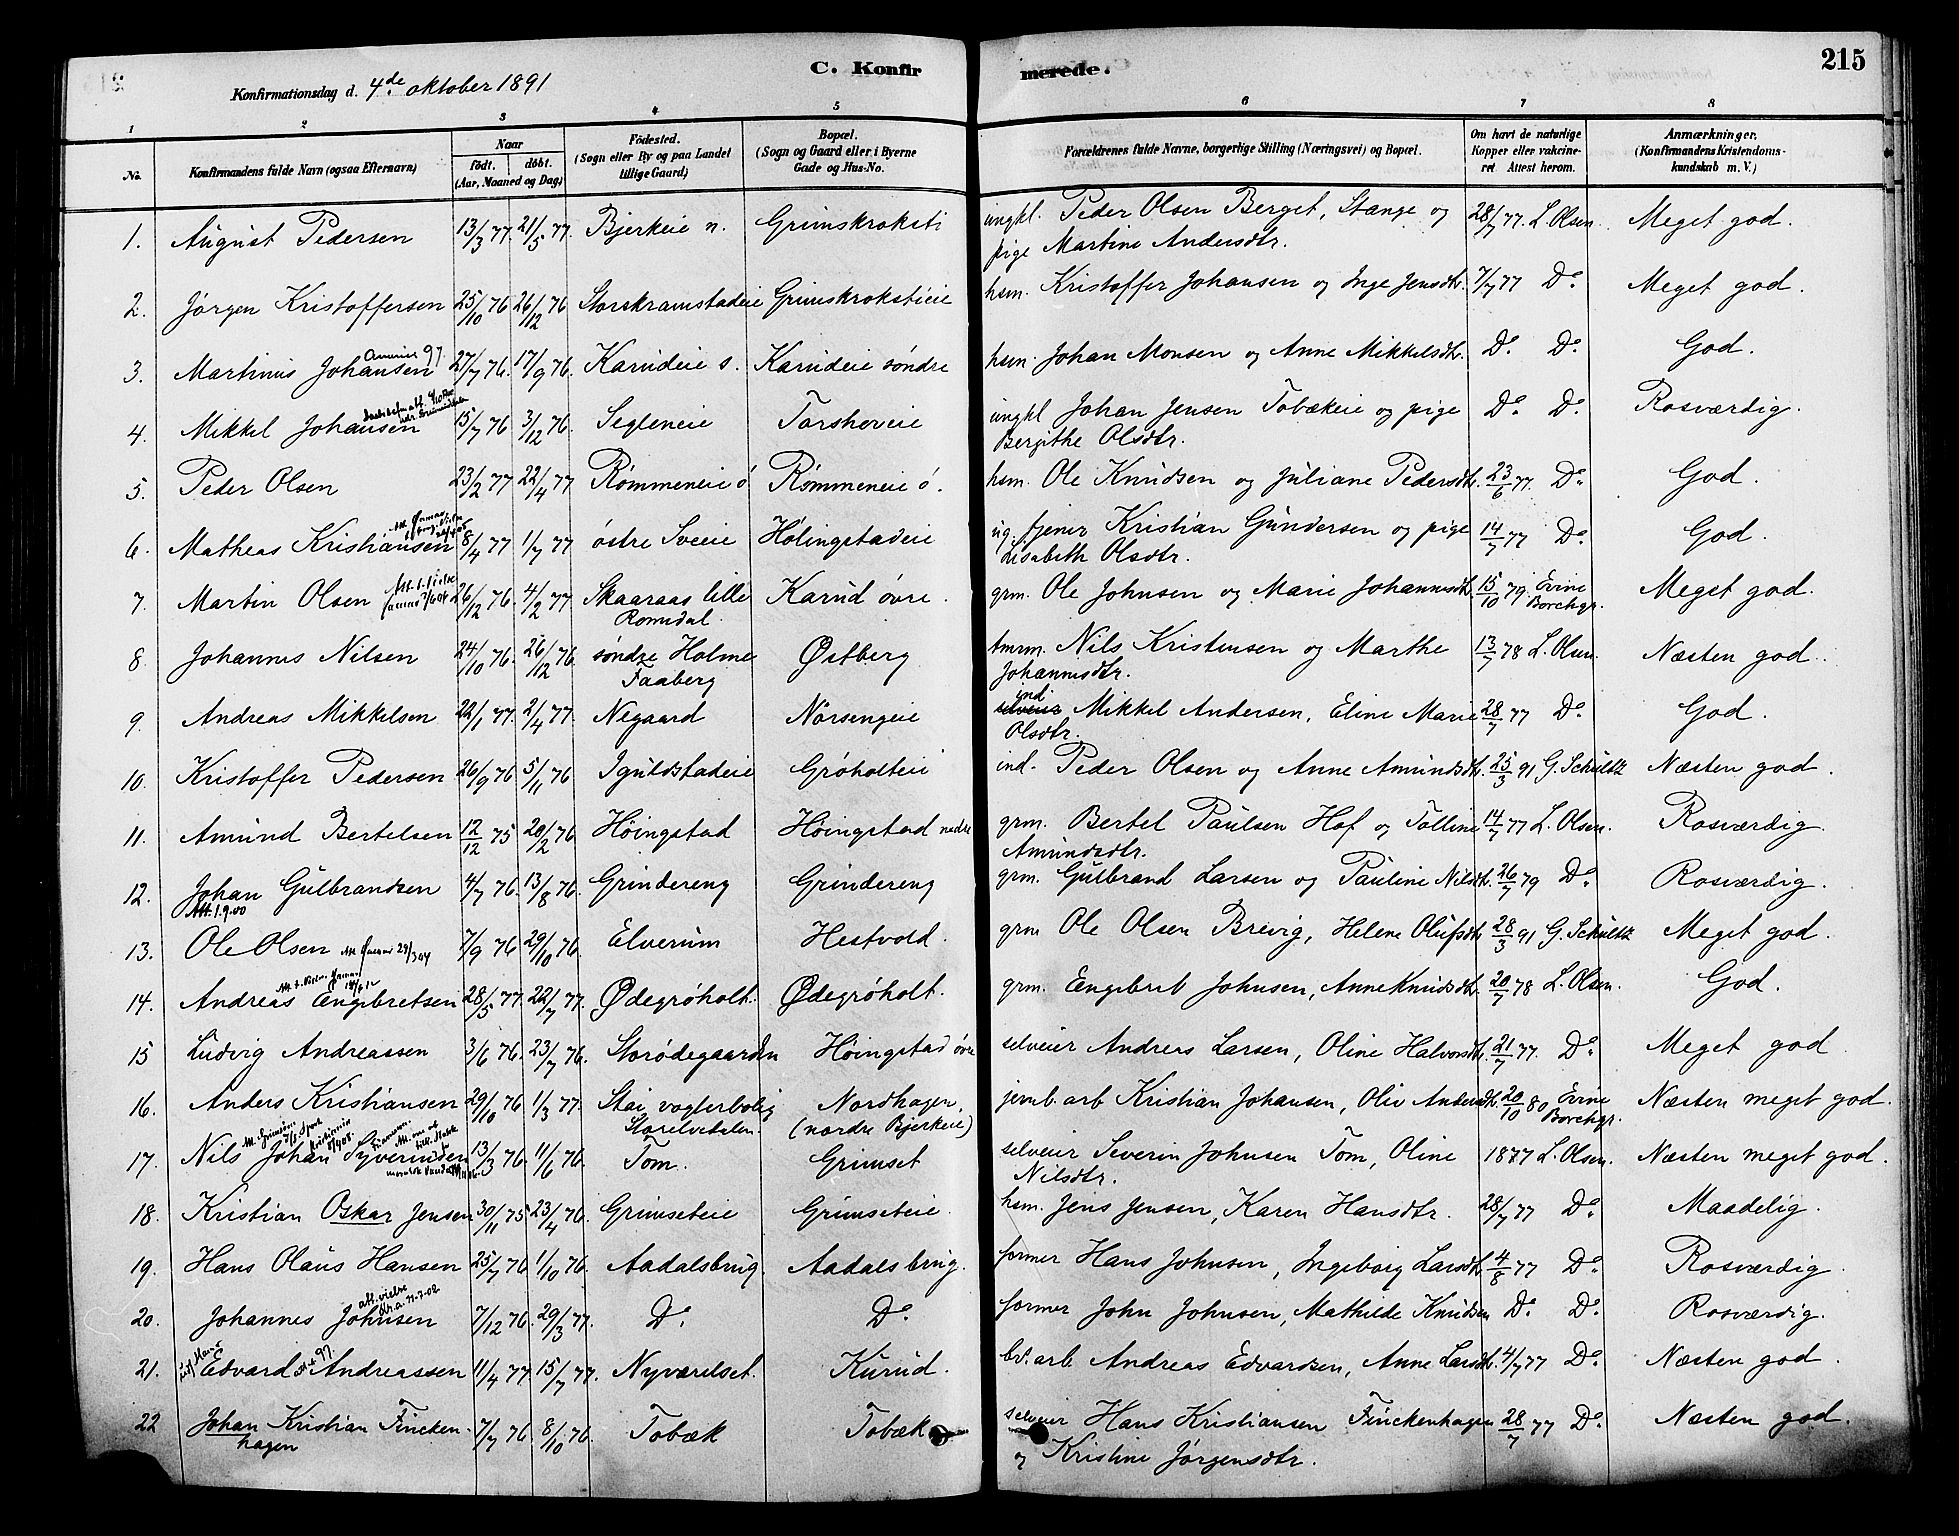 C. Konfirmerede. 215
Konfirmationsdag d. 4de oktober 1891
1 2 3 4 5 6 7 8
No. Konfirmandens fulde Navn (ogsaa Efternavn) Naar født. døbt. (Aar, Maaned og Dag) Fødested. (Sogn eller By og paa Landet tillige Gaard) Bopæl. (Sogn og Gaard eller i Byerne Gade og Hus-No. Forældrenes fulde Navne, borgerlige Stilling (Næringsvei) og Bopæl. Om havt de naturlige Kopper eller vakcineret Attest herom. Anmærkninger. (Konfirmandens Kristendomskundskab m. V.)
1. August Pedersen 13/3 77. 21/5 77. Bjerkeie n. Grimskroksti ungkl. Peder Olsen Berget, Stange og 28/7 77. L. Olsen. Meget god.
pige Martine Andersdtr.
2. Jørgen Kristoffersen 25/10 76 26/12 76 Storskramstadeie Grimskrokstieie hsm. Kristoffer Johansen og Inge Jensdtr. 7/7 77 Do. Meget god.
3. Martinus Johansen 27/7 76. 17/9 76. Karudeie s. Karudeie søndre hsm. Johan Monsen og Anne Mikkelsdtr. Do. Do. God.
4. Mikkel Johansen 15/7 76 3/12 76. Segleneie Torshoveie ungkl Johan Jensen Tobækeie og pige Do. Do. Rosværdig.
Bergithe Olsdtr.
5. Peder Olsen 23/2 77 22/4 77 Rømmeneie ø Rømmeneie ø. hsm. Ole Knudsen og Juliane Pedersdtr. 23/6 77. Do. God.
6. Matheas Kristiansen 8/4 77 1/7 77 østre Sveeie Hølingstadeie ug. tjener Kristian Gundersen og pige 14/7 77 Do. God.
Lisabeth Olsdtr.
7. Martin Olsen 26/12 76. 4/2 77 Skaaraas lille Karud øvre. grm. Ole Johnsen og Marie Johannesdtr. 15/10 79. Evine Meget god.
Romedal. Borchgr.
8. Johannes Nilsen 24/10 76. 26/12 76. søndre Holme Østberg tmrm. Nils Kristensen og Marthe 13/7 78 L. Olsen. Næsten god.
Faaberg Johannesdtr.
9. Andreas Mikkelsen 22/1 77. 2/4 77. Negaard Norsengeie ind Mikkel Andersen, Eline Marie 28/7 77 Do. God.
Olsdtr.
10. Kristoffer Pedersen 26/9 76 5/11 76 Iguldstadeie Grøholteie ind. Peder Olsen og Anne Amundsdtr. 25/3 91 G. Schultz Næsten god.
11. Amund Bertelsen 12/12 75 20/2 76 Høingstad Høingstad nedre grm. Bertel Paulsen Hof og Tolline 14/7 77 L. Olsen. Rosværdig.
Amundsdtr.
12. Johan Gulbrandsen 4/7 76. 13/8 76. Grindereng Grindereng grm. Gulbrand Larsen og Pauline Nilsdtr. 26/7 79 Do. Rosværdig.
Att. 1.9.00
13. Ole Olsen 7/9 76 29/10 76. Elverum Hestvold. grm Ole Olsen Brevig, Helene Olufsdtr. 28/3 91 G. Schultz Meget god.
14. Andreas Engebretsen 28/5 77. 22/7 77. Ødegrøholt. Ødegrøholt. grm. Engebret Johnsen, Anne Knudsdtr. 20/7 78 L. Olsen. God.
15 Ludvig Andreassen 3/6 76. 23/7 76. Storødegaarden Høingstad øvre selveier Andreas Larsen, Oline Halvorsdtr. 21/7 77. Do. Meget god
16. Anders Kristiansen 29/10 76 1/3 77. Stai vogterbolig Nordhagen, jernb. arb Kristian Johansen, Oliv Andersdtr. 20/10 80 Evine Næsten meget god.
Storelvedalen. (nordre Bjerkeie) Borchgr.
17. Nils Johan Syverinsen 13/3 76. 11/6 76. Tom. Grimset selveier Severin Johnsen Tom, Oline 1877 L. Olsen. Næsten meget god.
Nilsdtr.
18. Kristian Oskar Jensen 30/11 75 23/4 76. Grimseteie Grimseteie. hsm. Jens Jensen, Karen Hansdtr. 28/7 77 Do. Maadelig.
19. Hans Olaus Hansen 25/7 76 1/10 76. Aadalsbrug. Aadalsbrug. former Hans Johnsen, Ingeborg Larsdtr. 4/8 77 Do. Rosværdig.
20. Johannes Johnsen 7/12 76. 29/3 77. Do. Do. former John Johnsen, Mathilde Knudsen Do. Do. Rosværdig.
21. Edvard Andreassen 11/4 77 15/7 77. Nyværelset. Kurud. br. arb Andreas Edvardsen, Anne Larsdtr. 4/7 77 Do. Næsten god.
22 Johan Kristian Fincken- 7/7 76 8/10 76. Tobæk Tobæk selveier Hans Kristiansen Finckenhagen 28/7 77 Do. Næsten god.
hagen og Kristine Jørgensdtr.